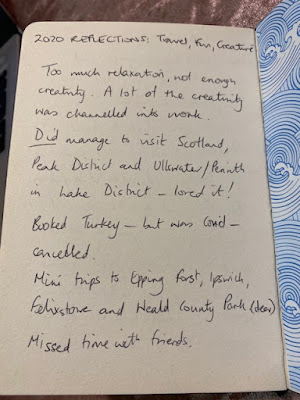 2020 REFLECTIONS: Travel, Fun, Creature
Too much relaxation, not enough
creativity. A lot of the creativity
was channelled into work.
Did manage to visit Scotland,
Peak District and Ullswater/Penrith
in Lake District – loved it!
Booked Turkey – but was Covid –
cancelled.
Mini trips to Epping Forst, Ipswich,
Felixstowe and Weald County Park (deer)
Missed time with friends.